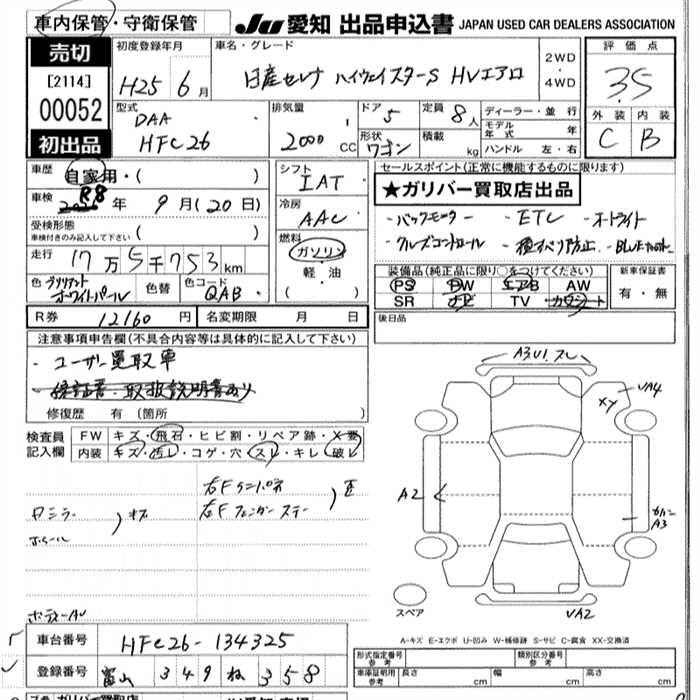 車内保管・守衛保管
JU 愛知 出品申込書 JAPAN USED CAR DEALERS ASSOCIATION
売切
[2114]
00052
初出品
初度登録年月
H25 6月
車名・グレード
日産セレナ ハイウェイスターS HVエアロ
2WD
・
4WD
評価点
3.5
型式
DAA
HFC26
排気量
2000 CC
ドア 5
形状 ワゴン
定員 8人
積載 kg
ディーラー・並行
モデル年式 年
ハンドル 左・右
外装 内装
C B
車歴 自家用・( )
車検 R8年 9月(20日)
受検形態
車検付きのみ記入して下さい ( )
走行 17万5千753km
色 ブリリアントホワイトパール 色替 色コード QAB
シフト
IAT
冷房
AAC
燃料
ガソリン
軽・油
( )
セールスポイント(正常に機能するものに限ります)
★ガリバー買取店出品
・バックモニター ・ETC ・オートライト
・クルーズコントロール ・横すべり防止 ・Bluetooth
装備品(純正品に限り○をつけてください)
PS PW エアB AW
SR ナビ TV カワシート
新車保証書
有・無
R券 12160円 名変期限 月 日
後日品
注意事項申告欄(不具合内容等は具体的に記入して下さい)
・ユーザー買取車
・保証書・取扱説明書あり
修復歴 有 (箇所 )
検査員記入欄
FW キズ・飛石・ヒビ割・リペア跡・X要
内装 キズ・汚レ・コゲ・穴・スレ・キレ・破レ
右F
左Fフェンダー
A3 U1 スレ
VA4
XY
A2
A3
VA2
スペア
A-キズ E-エクボ U-凹み W-補修跡 S-サビ C-腐食 XX-交換済
車台番号 HFC26-134325
登録番号 富山 349 ね 358
形式指定番号 参考
類別区分番号 参考
車庫証明用 参考 長さ cm 幅 cm 高さ cm